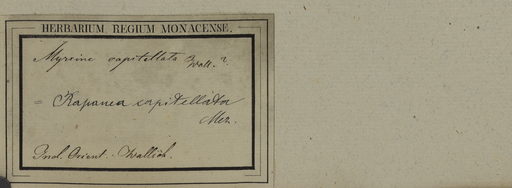 HERBARIUM REGIUM MONACENSE.
Myrsine capitellata Wall.?
= Rapanea capitellata
Mez.
Ind. Orient. Wallich.